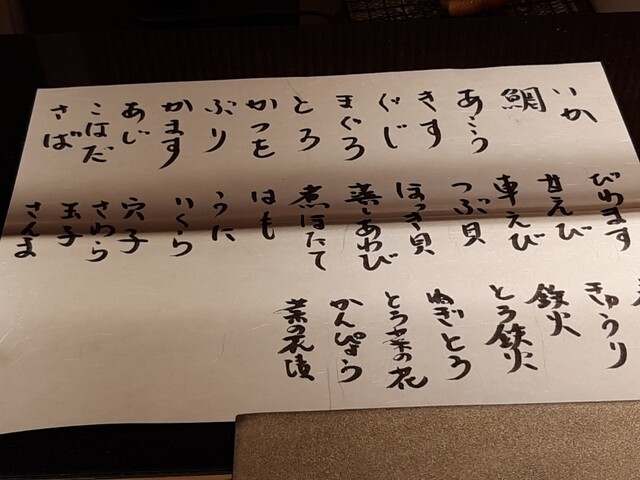 いか
鯛
あこう
きす
ぐじ
まぐろ
とろ
かつを
ぶり
かます
あじ
こはだ
さば
びわます
甘えび
車えび
つぶ貝
ほっき貝
蒸しあわび
煮ほたて
はも
うに
いくら
穴子
さわら
玉子
さんま
きゅうり
鉄火
とろ鉄火
ねぎとろ
とろ菜の花
かんぴょう
菜の花漬